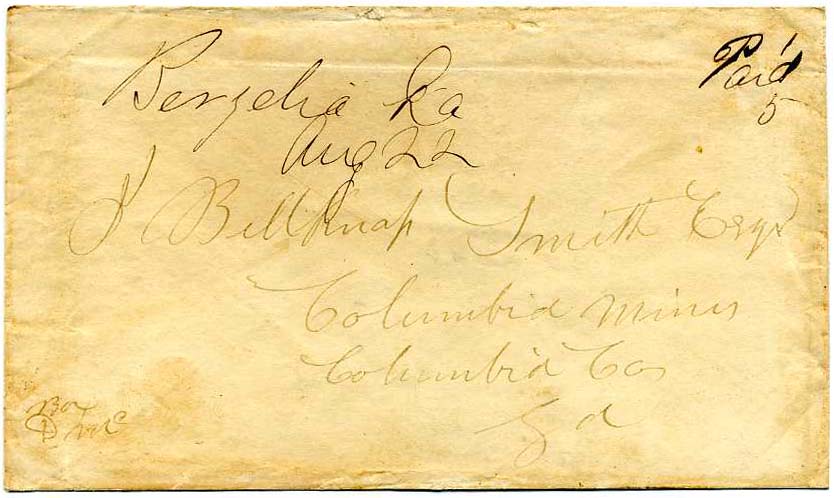 Berzelia Ga
Paid
5
Aug 22
J Bellknap Smith Esqr
Columbia Mines
Columbia Co
Ga